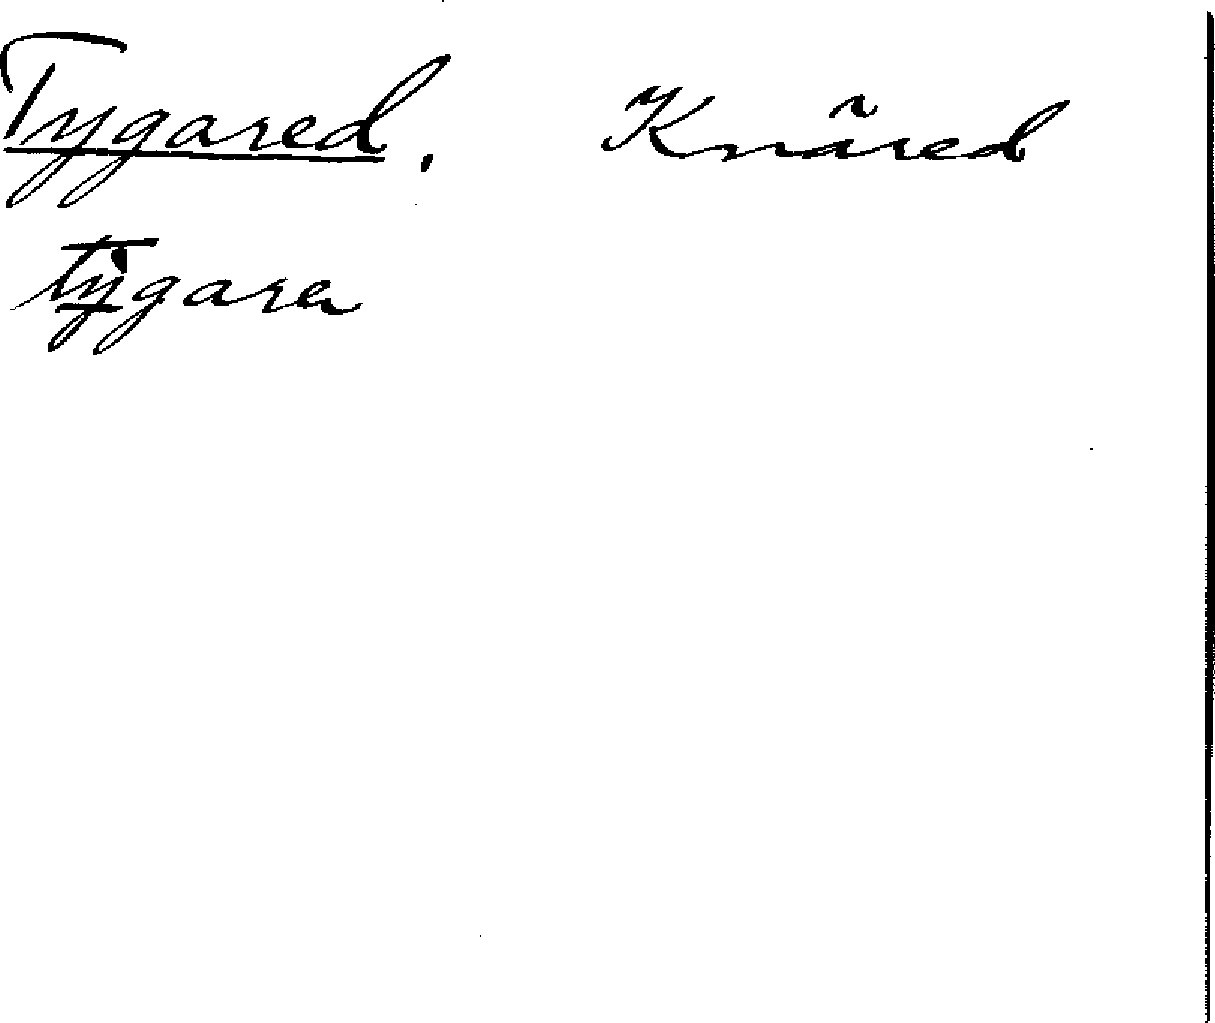 Tygared. Knäred
tygarer